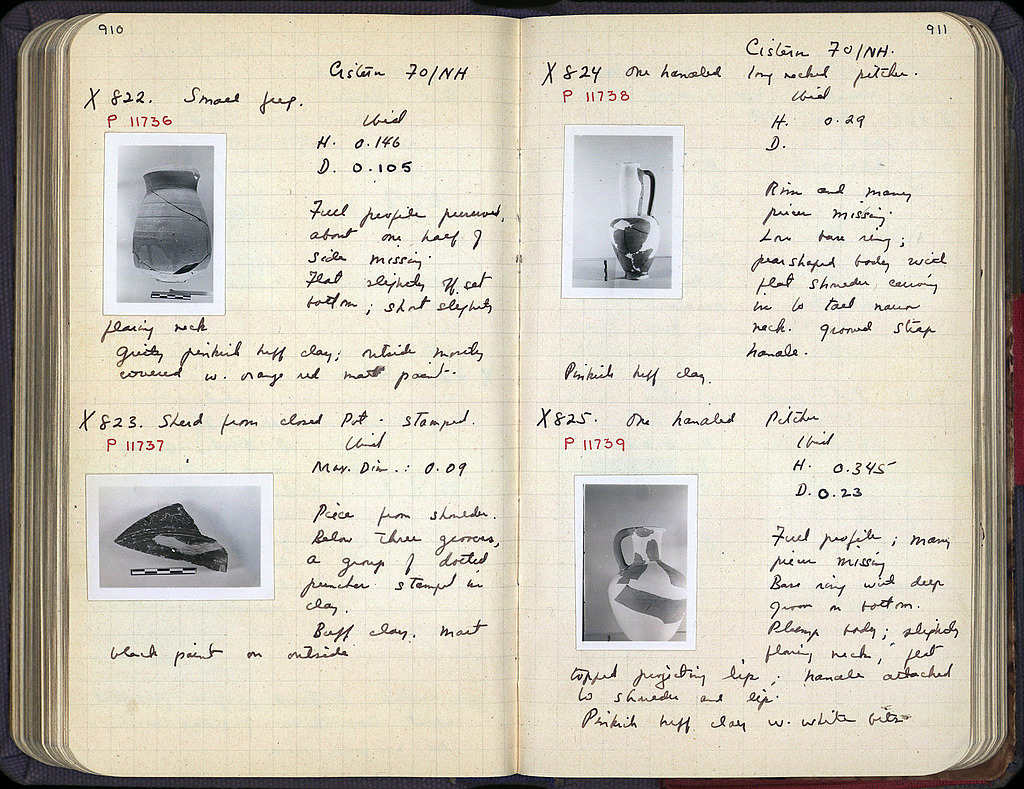 910
Cistern 70/NH
X 822. Small jug.
P 11736
Ibid
H. 0.146
D. 0.105
Full profile preserved,
about one half of
side missing.
Flat slightly off set
bottom; short slightly
flaring neck
gritty pinkish buff clay; outside mostly
covered w. orange red matt paint.
X 823. Sherd from closed Pot. stamped.
P 11737
Ibid
Max. Dim.: 0.09
Piece from shoulder.
Below three grooves,
a group of dotted
punches stamped in
clay.
Buff clay. Matt
black paint on outside
911
Cistern 70/NH.
X 824 One handled long necked pitcher.
P 11738
Ibid
H. 0.29
D.
Rim and many
pieces missing.
Low base ring;
pear shaped body with
flat shoulder curving
in to tall narrow
neck. grooved strap
handle.
Pinkish buff clay.
X 825. One handled Pitcher
P 11739
Ibid
H. 0.345
D. 0.23
Full profile; many
pieces missing
Base ring with deep
groove on bottom.
Plump body; slightly
flaring neck; flat
topped projecting lip; handle attached
to shoulder and lip.
Pinkish buff clay w. white bits